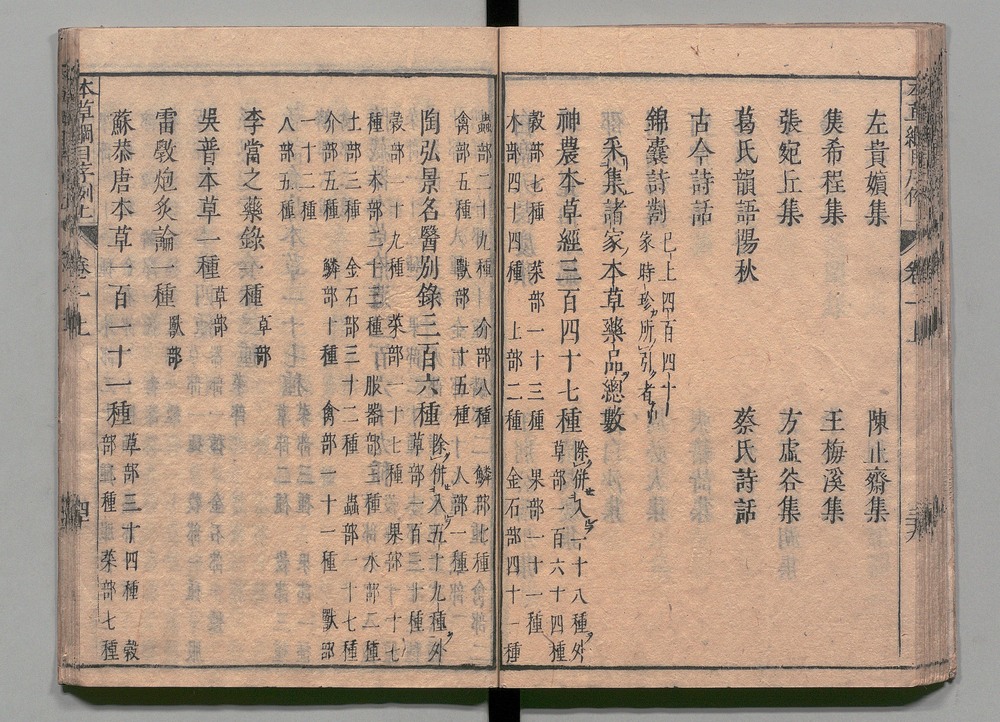 左貴嬪集
陳止齋集
侯希程集
王梅溪集
張宛丘集
方虛谷集
葛氏韻語陽秋
蔡氏詩話
古今詩話
錦囊詩對
已上四百四十
家時珍所引者
采集諸家本草藥品總數
神農本草經三百四十七種
除併入一十八種外
草部一百六十四種
穀部七種 菜部一十三種 果部一十一種
木部四十四種 土部二種 金石部四十一種
蟲部二十九種 介部八種 鱗部七種 禽部
禽部五種 獸部一十五種 人部一種
陶弘景名醫別錄三百六種
除併入五十九種外
草部一百三十種
穀部一十九種 菜部一十七種 果部一十七
種 木部二十種 服器部三種 水部二種
土部三種 金石部三十二種 蟲部一十七種
介部五種 鱗部十種 禽部一十一種 獸部
一十二種
人部五種
李當之藥錄一種
草部
吳普本草一種
草部
雷斅炮炙論一種
獸部
蘇恭唐本草一百一十一種
草部三十四種 穀
部二種 菜部七種
本草綱目序例上 卷一上
四十